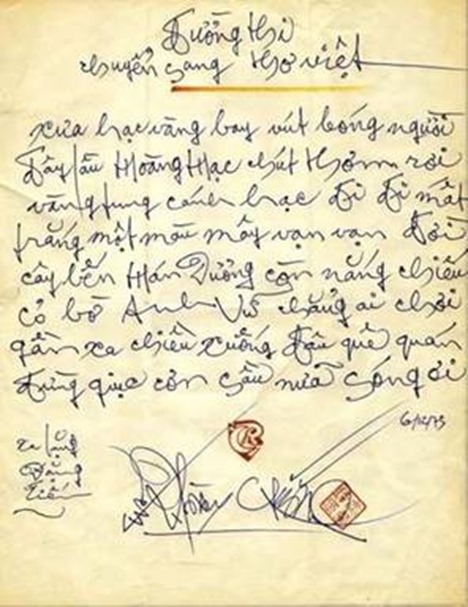 Đường thi
chuyển sang thơ việt
xưa hạc vàng bay vút bóng người
Đây lầu Hoàng Hạc chút thơm rơi
vàng tung cánh hạc đi đi mất
trắng một màu mây vạn vạn đời
cây bến Hán Dương còn nắng chiếu
cỏ bờ Anh Vũ chẳng ai chơi
gần xa chiều xuống đâu quê quán
đừng giục cơn sầu nữa sóng ơi
Đặng
Tiến
Hoàng Chương